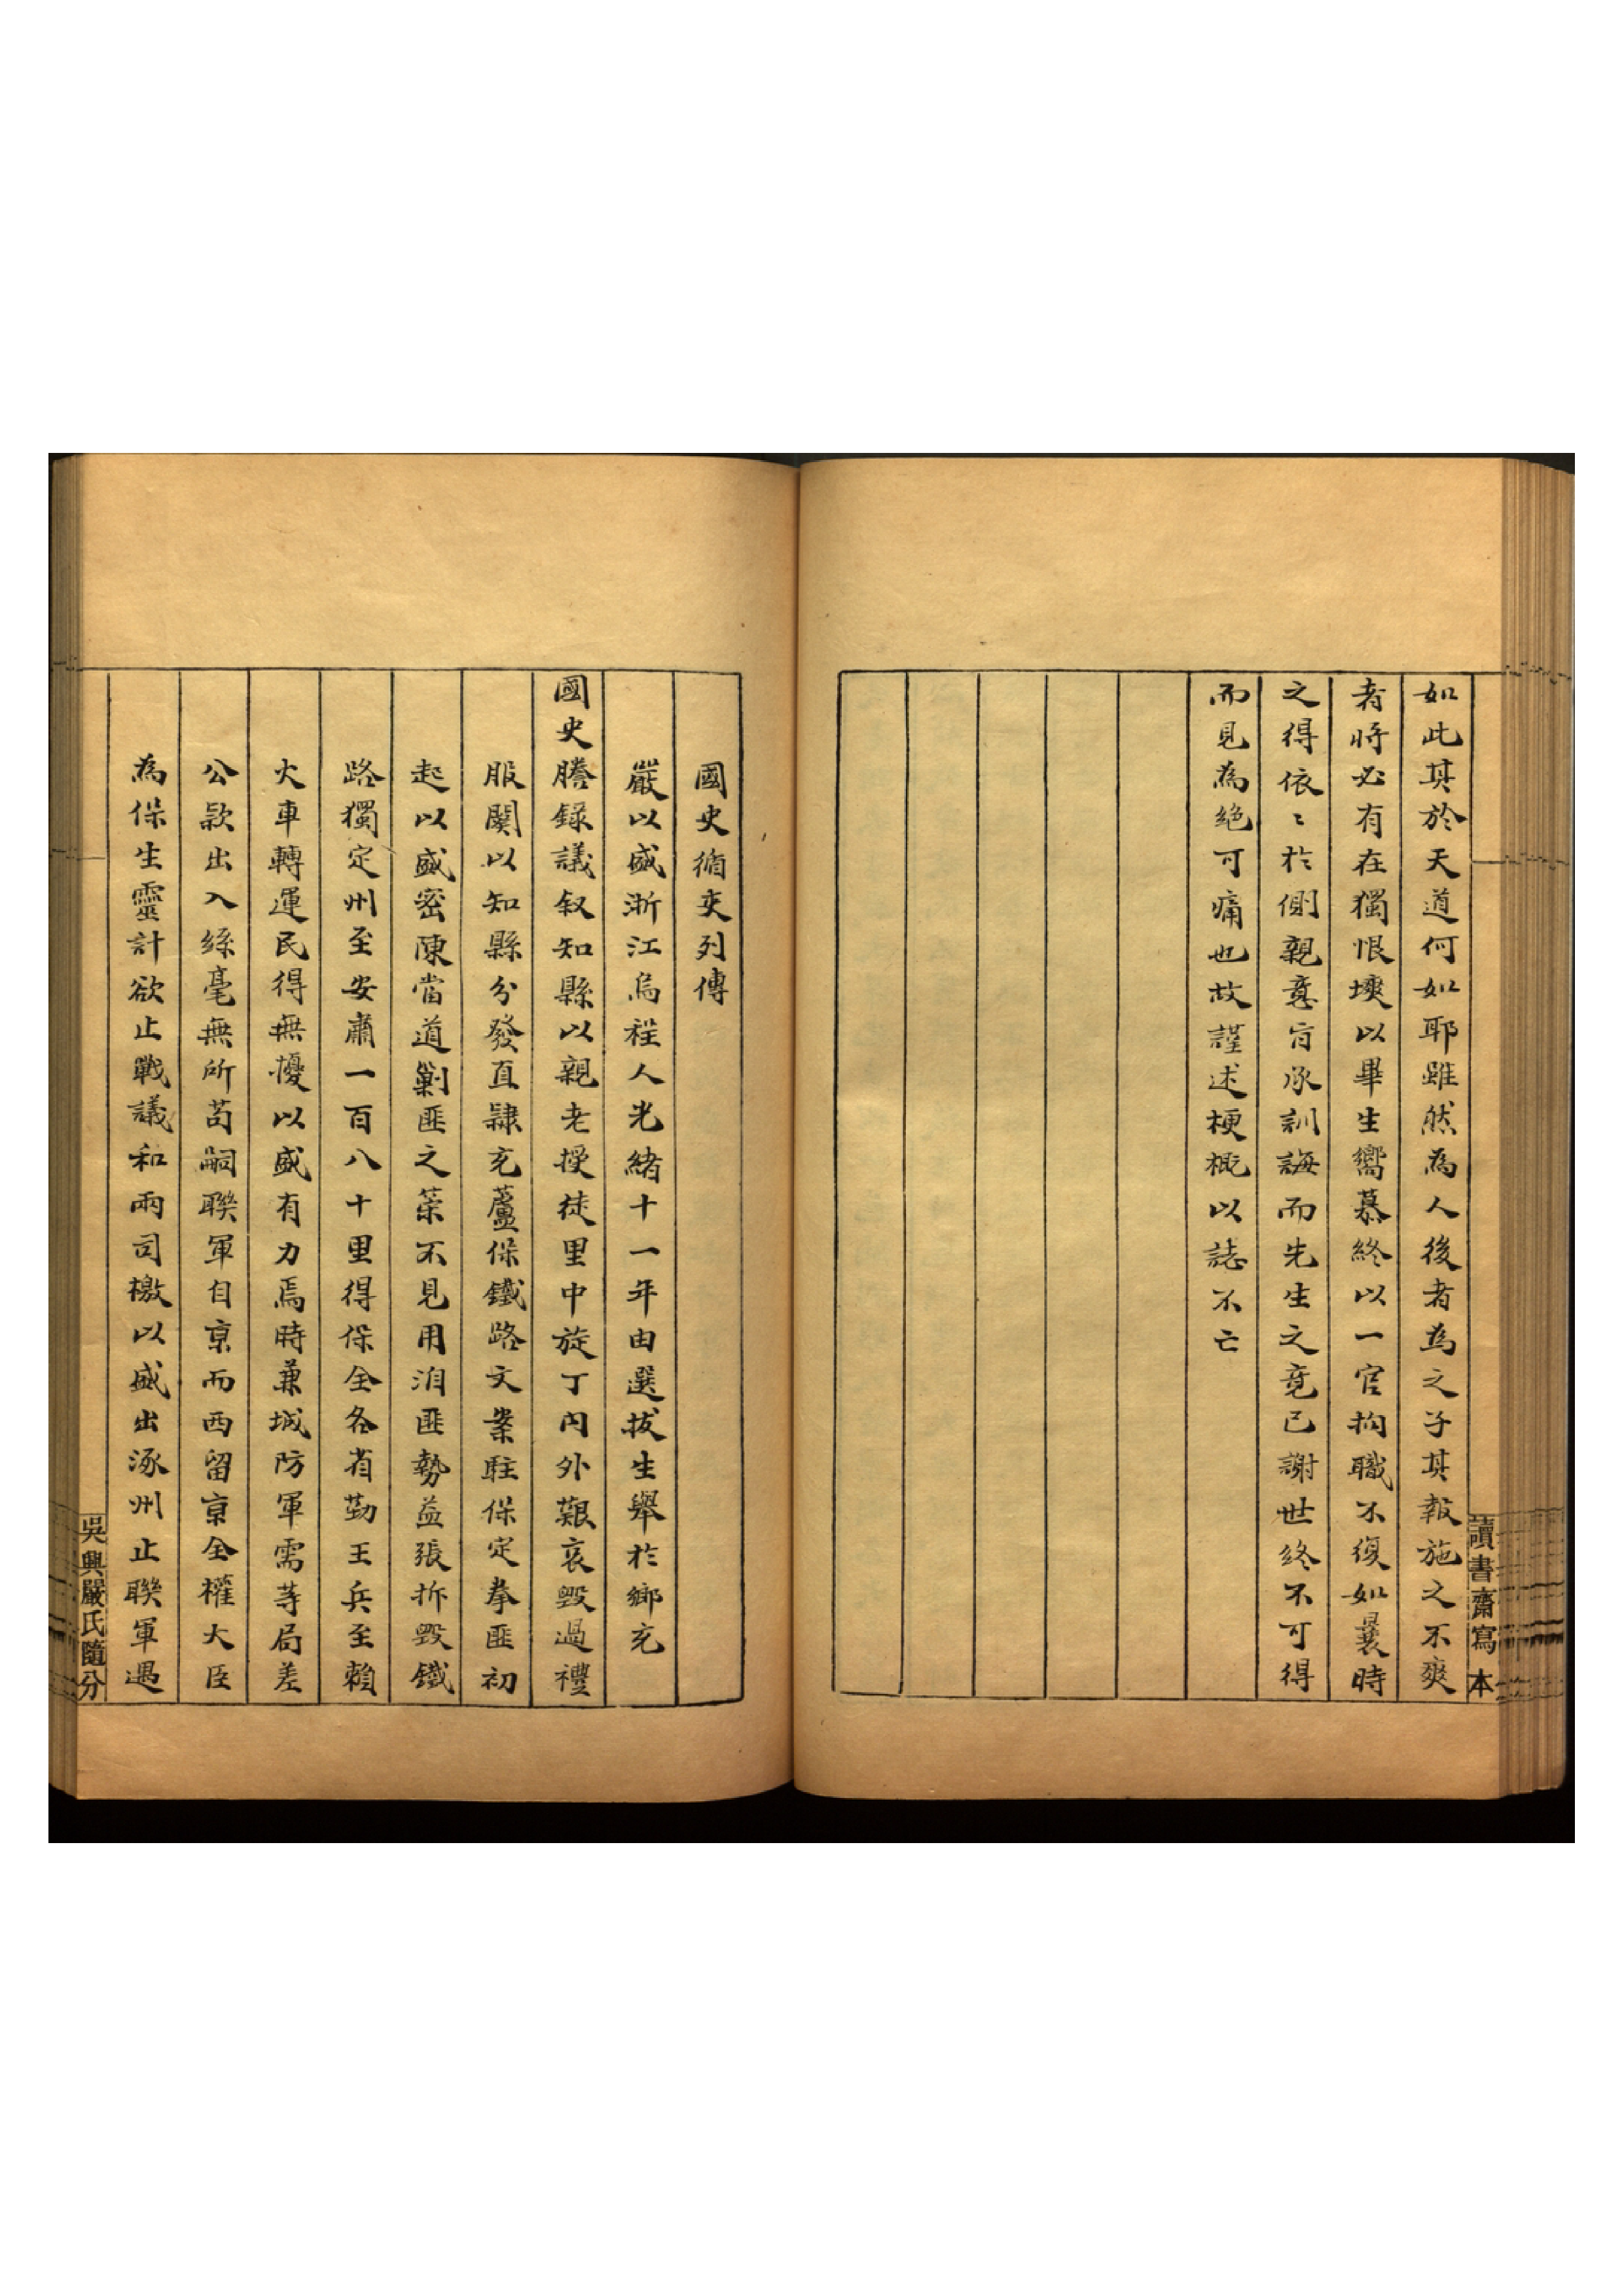 如此其於天道何如耶雖然為人後者為之子其報施之不爽
者將必有在獨恨堧以畢生嚮慕終以一官拘職不復如曩時
之得依〻於側親意旨承訓誨而先生之竟已謝世終不可得
而見為絕可痛也故謹述梗概以誌不亡
讀書齋寫本
國史循吏列傳
嚴以盛浙江烏程人光緒十一年由選拔生舉於鄉充
國史謄錄議叙知縣以親老授徒里中旋丁內外艱哀毀過禮
服闋以知縣分發直隸充蘆保鐵路文案駐保定拳匪初
起以盛密陳當道剿匪之策不見用洎匪勢益張拆毀鐵
路獨定州至安肅一百八十里得保全各省勤王兵至賴
火車轉運民得無擾以盛有力焉時兼城防軍需等局差
公款出入絲毫無所苟嗣聯軍自京而西留京全權大臣
為保生靈計欲止戰議和兩司檄以盛出涿州止聯軍遇
吳興嚴氏隨分